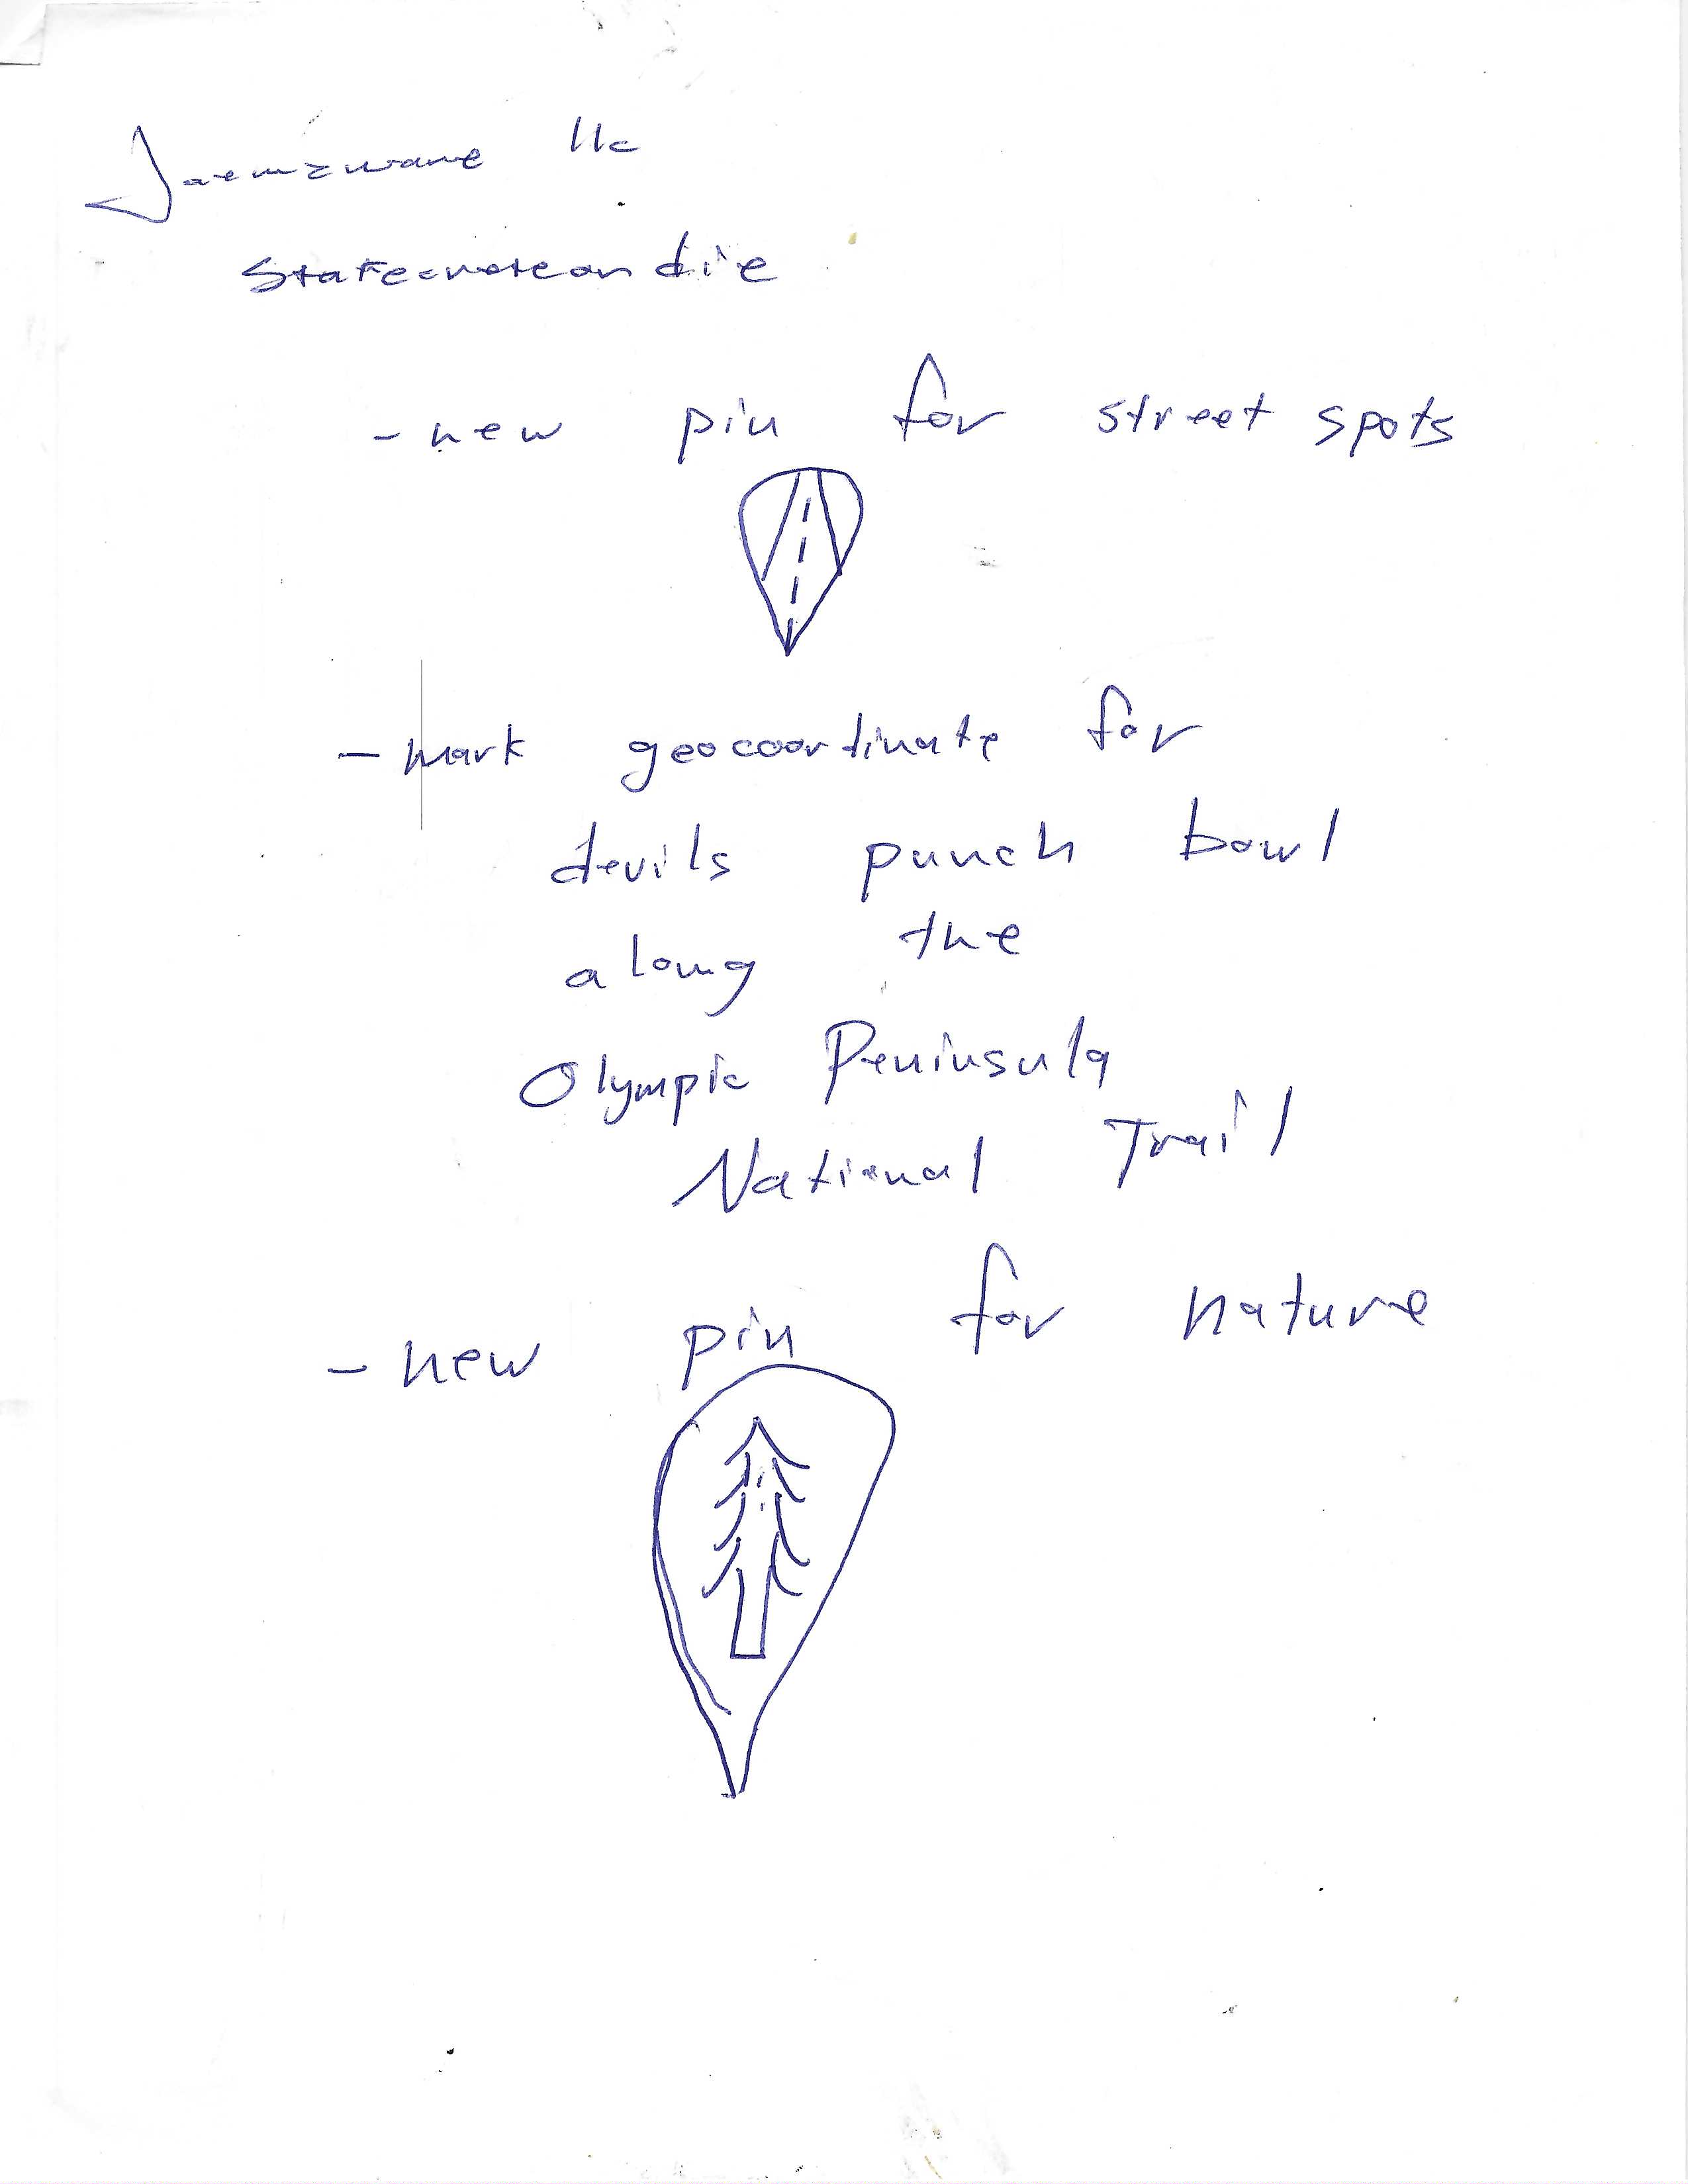 Jaemzware llc
Statecreteordie
- new pin for street spots
- mark geocoordinate for
devils punch bowl
along the
Olympic Peninsula
National Trail
- new pin for nature